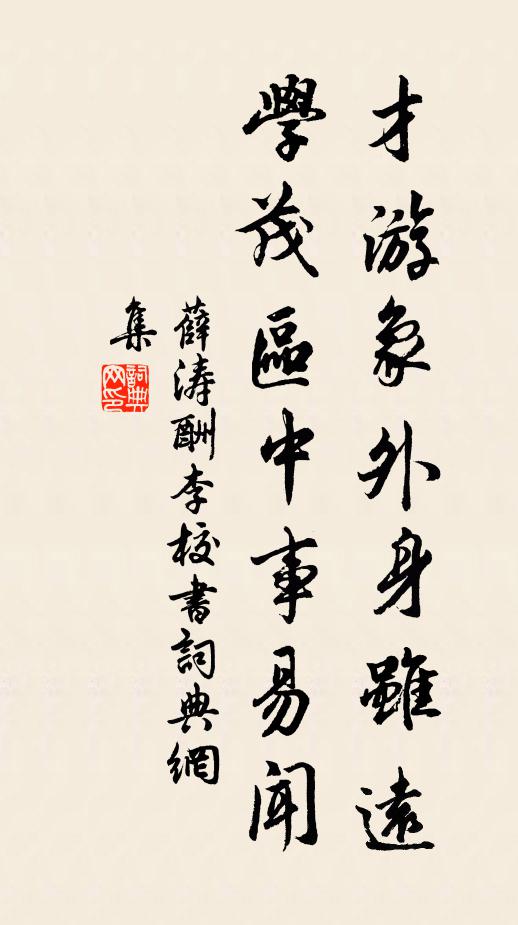 才游象外身雖遠
學茂區中事易聞
薛濤酬李校書詞典網
集
詞典
网印